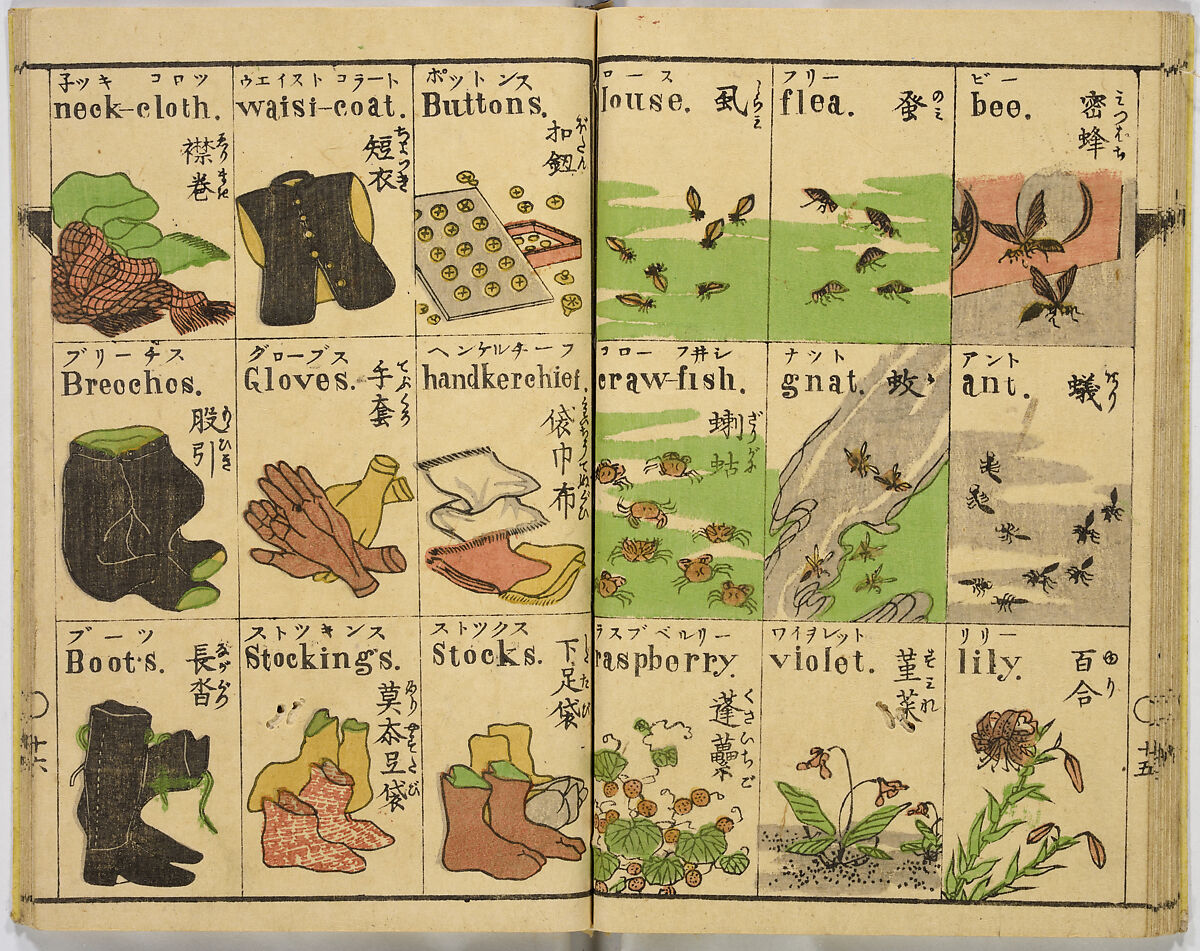 ビー
bee.
密蜂
みつばち
フリー
flea.
蚤
のミ
ロース
louse.
虱
しらミ
アント
ant.
蟻
あり
ナット
gnat.
蚊
か
クローフ井シ
craw-fish.
蝲蛄
ざりがに
リリー
lily.
百合
ゆり
ワイヲレット
violet.
菫菜
すミれ
ラスプベルリー
raspberry.
蓬虆
くさいちご
十五
ボットンス
Buttons.
扣鈕
ぼたん
ウエイストコラート
waist-coat.
短衣
ちよつき
子ツキ コロツ
neck-cloth.
襟巻
ゑりまき
ヘンケルチーフ
handkerchief.
袋巾布
グローブス
Gloves.
手套
てぶくろ
ブリーチス
Breeches.
股引
もゝひき
ストツクス
Stocks.
下足袋
したたび
ストツキンス
Stockings.
莫大足袋
めりやすたび
ブーツ
Boots.
長沓
ながぐつ
十六